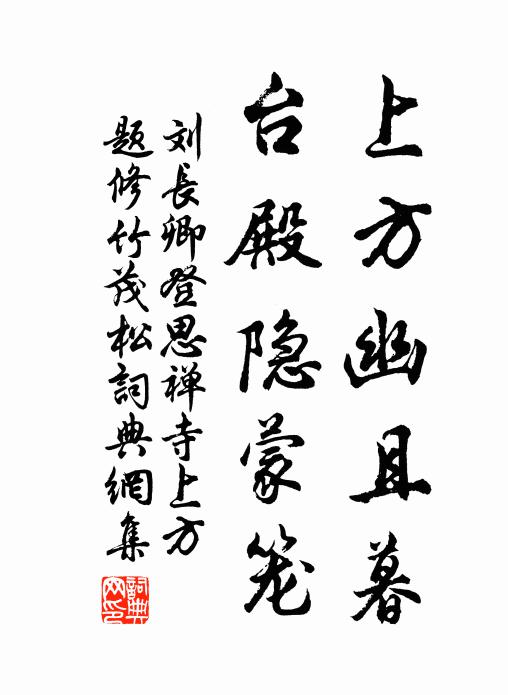 上方幽且暮
台殿隐蒙笼
刘長卿登思禅寺上方
题修竹茂松詞典網集
詞典网印